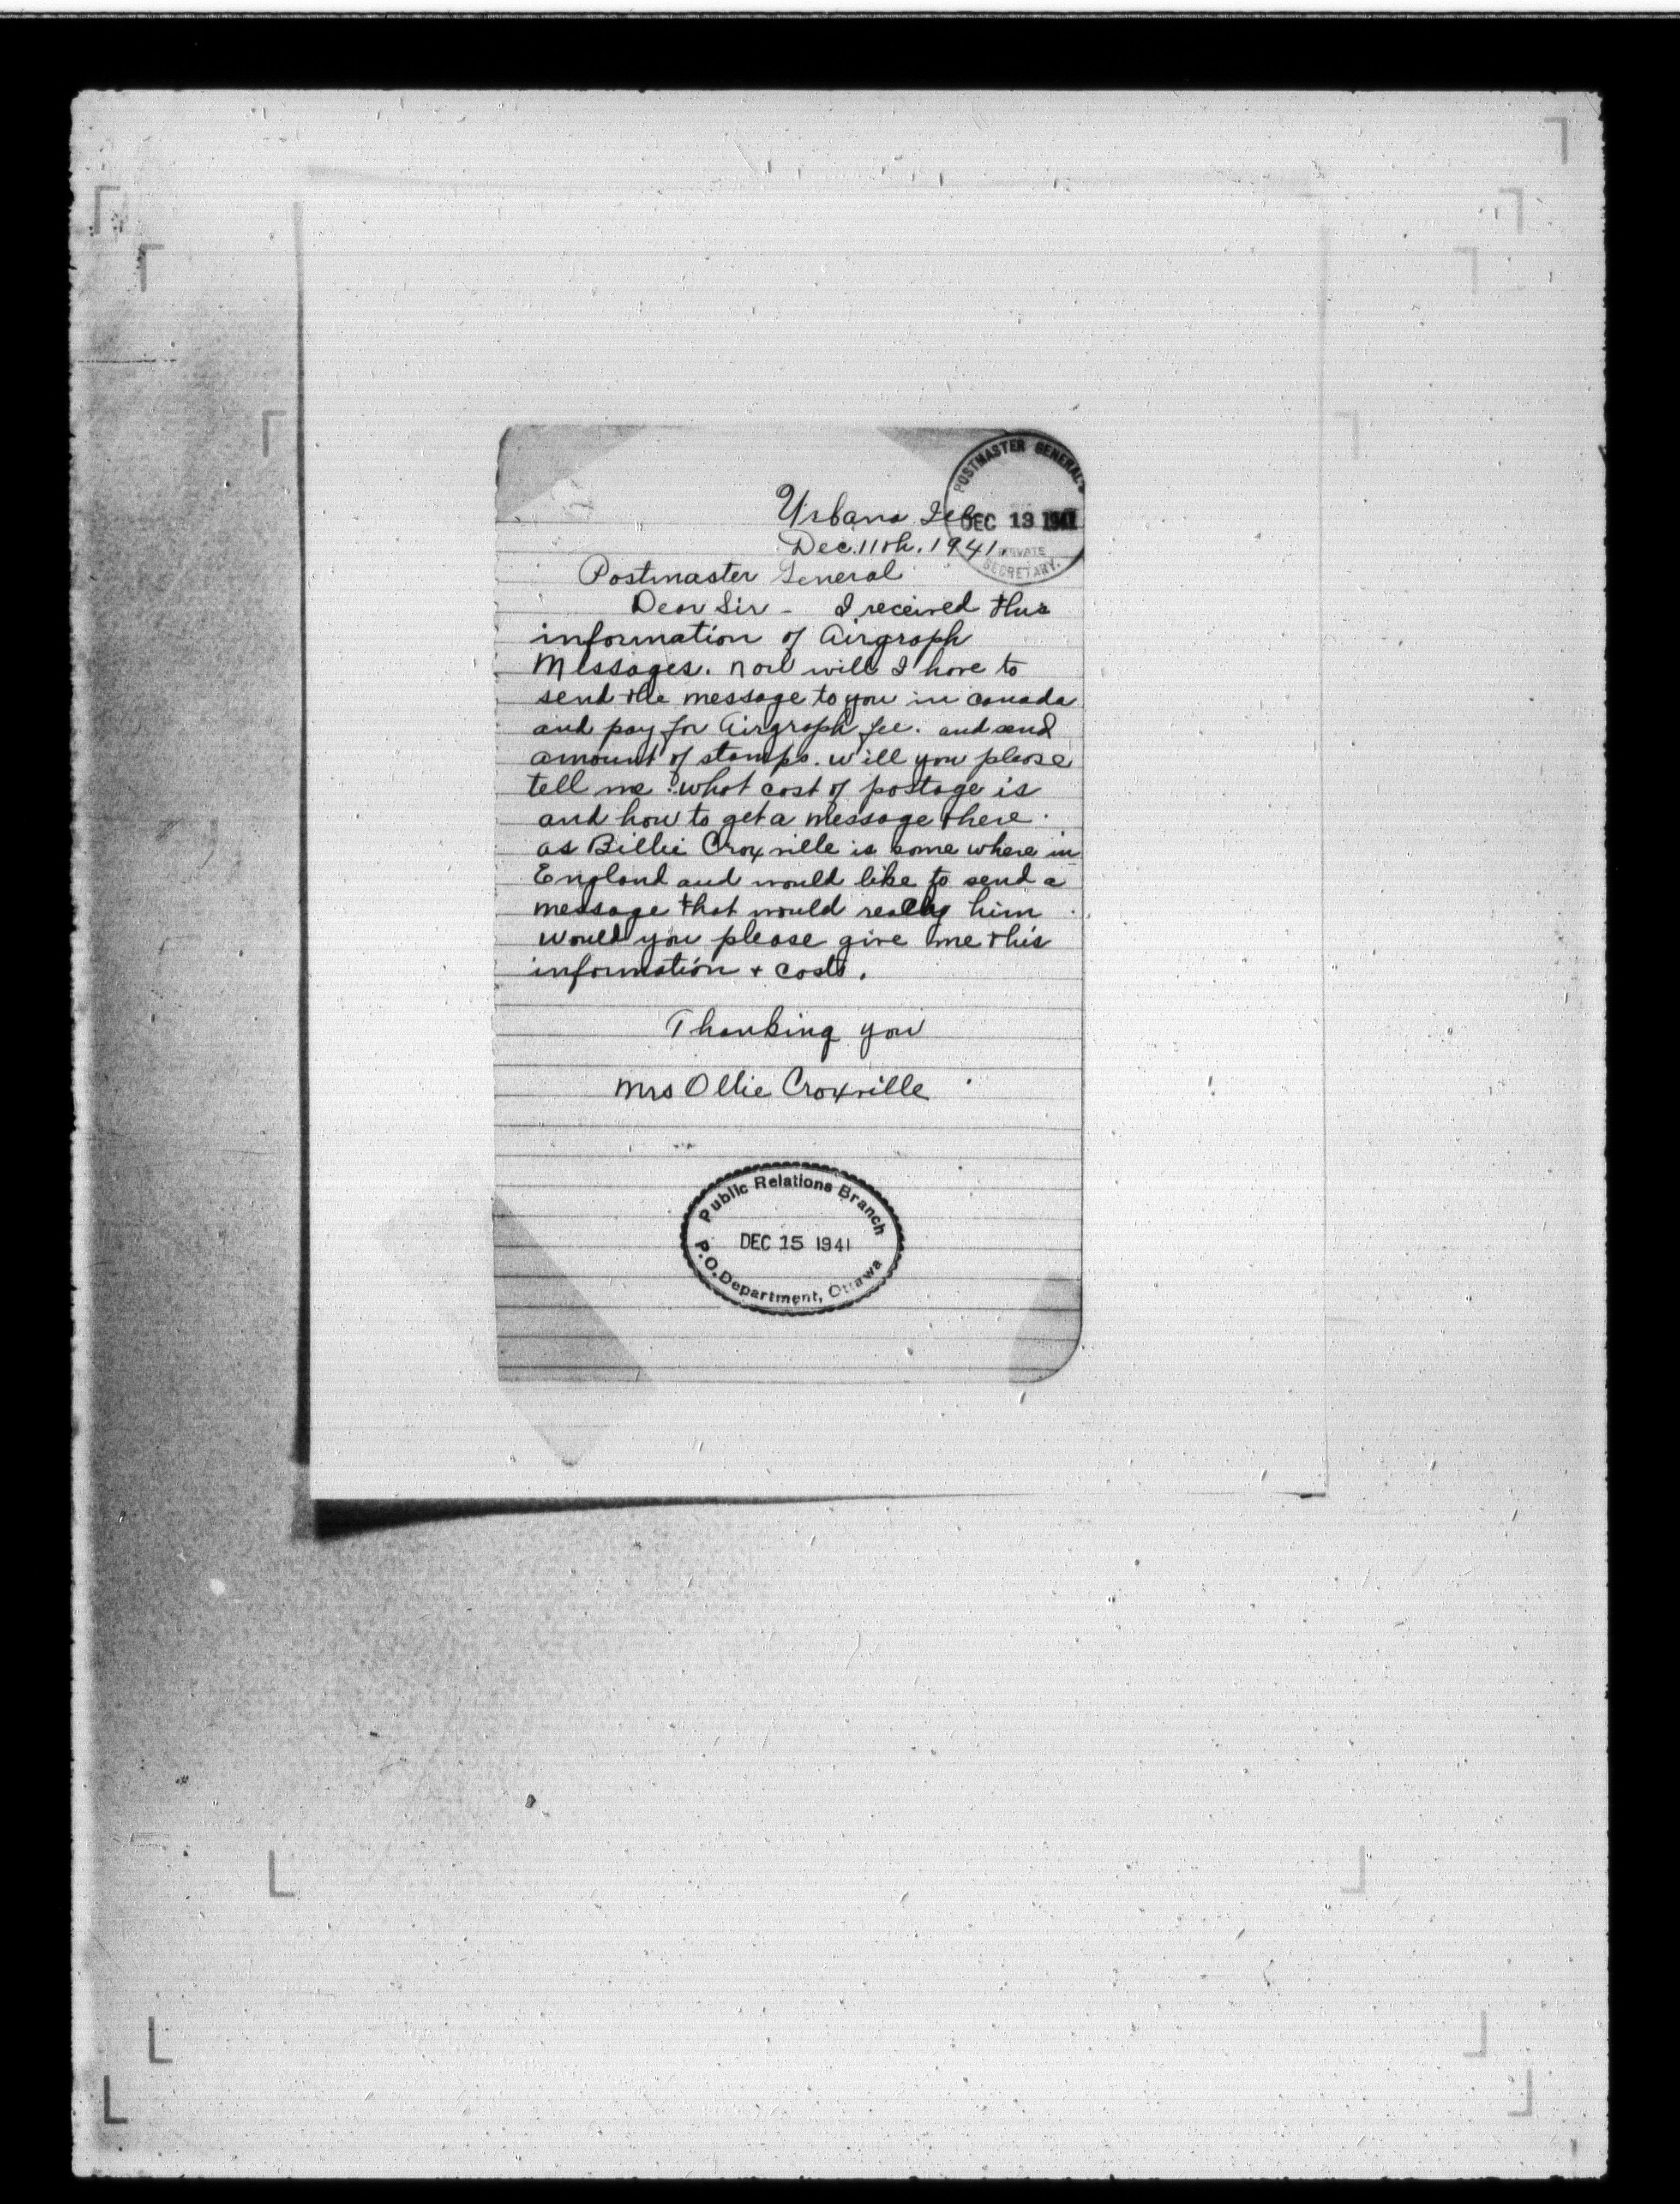 POSTMASTER GENERAL'S
DEC 13 1941
PRIVATE
SECRETARY.
Urbana Ill
Dec. 11th. 1941.
Postmaster General
Dear Sir - I received this
information of Airgraph
Messages. now will I have to
send the message to you in Canada
and pay for Airgraph fee. and send
amount of stamps. will you please
tell me what cost of postage is
and how to get a message there.
as Billie Croxville is some where in
England and would like to send a
message that would reach him
would you please give me this
information + costs.
Thanking you
Mrs Ollie Croxville
Public Relations Branch
DEC 15 1941
P.O. Department, Ottawa